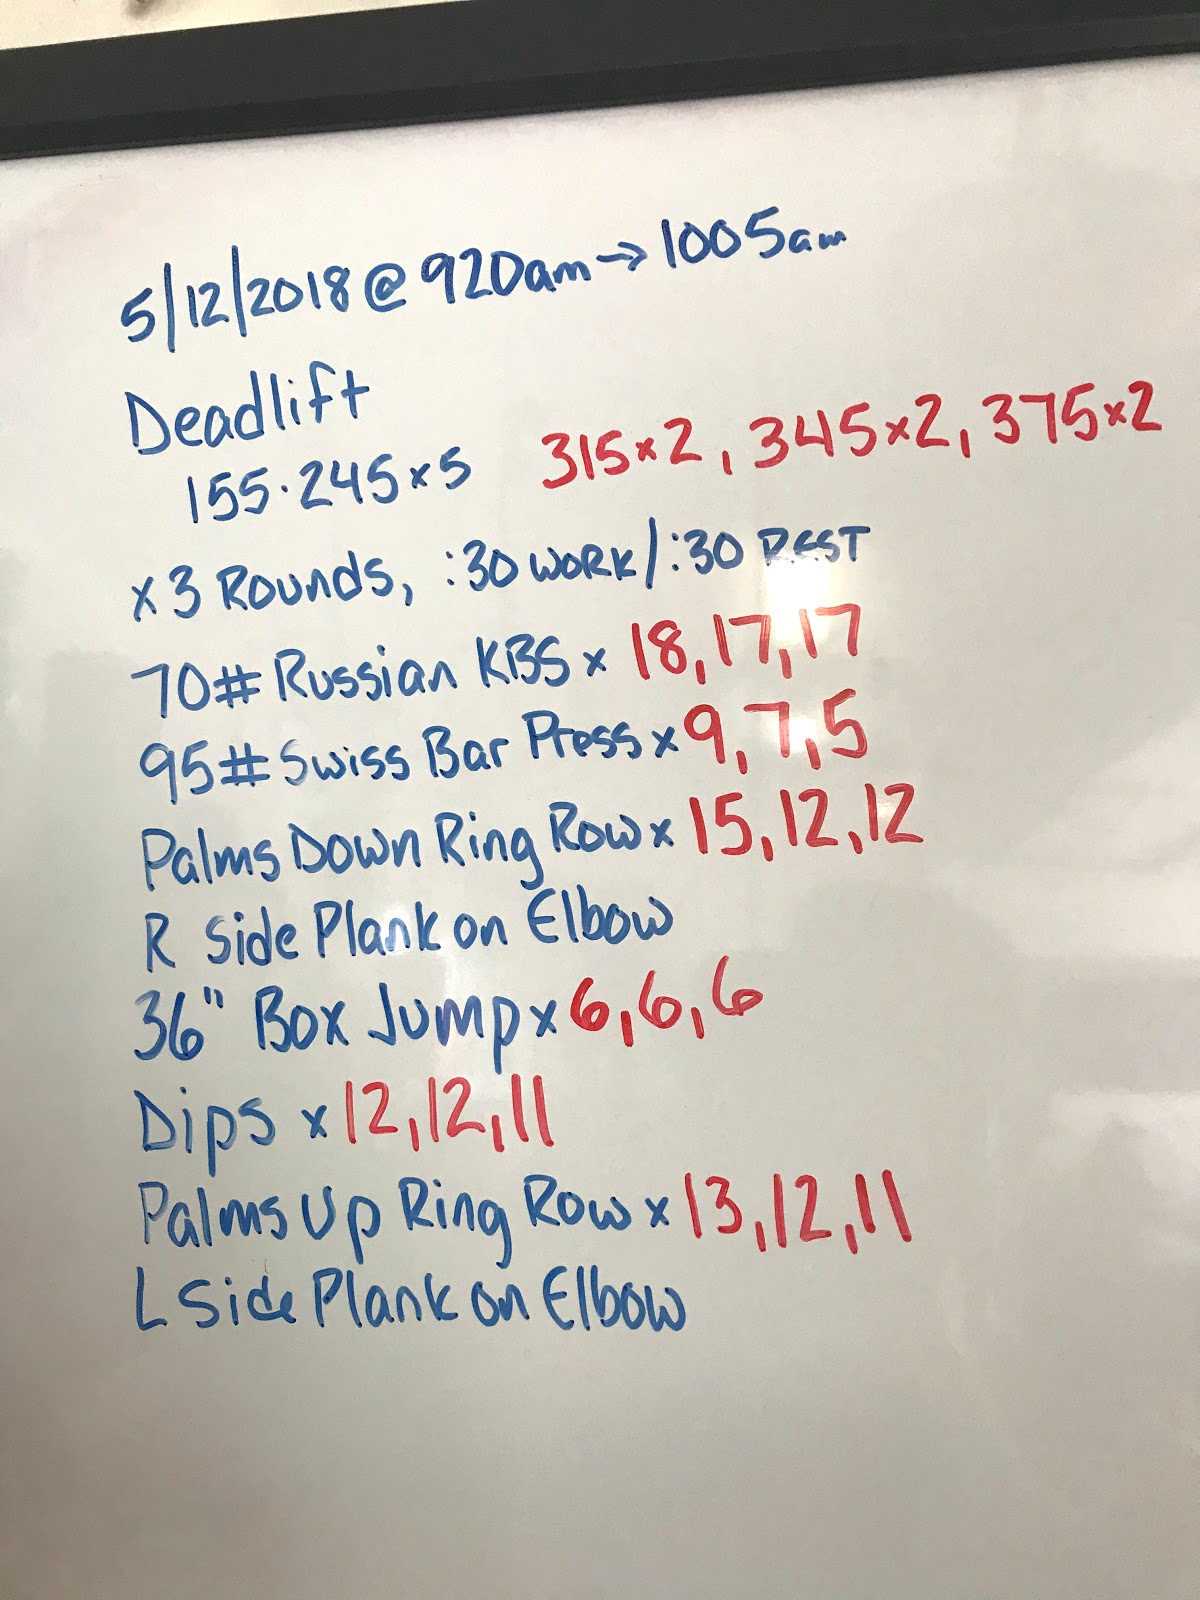 5/12/2018 @ 920am → 1005am
Deadlift
155·245x5 315x2, 345x2, 375x2
x3 Rounds, :30 WORK/:30 REST
70# Russian KBS x 18,17,17
95# Swiss Bar Press x 9,7,5
Palms Down Ring Row x 15,12,12
R Side Plank on Elbow
36" Box Jump x 6,6,6
Dips x 12,12,11
Palms Up Ring Row x 13,12,11
L Side Plank on Elbow